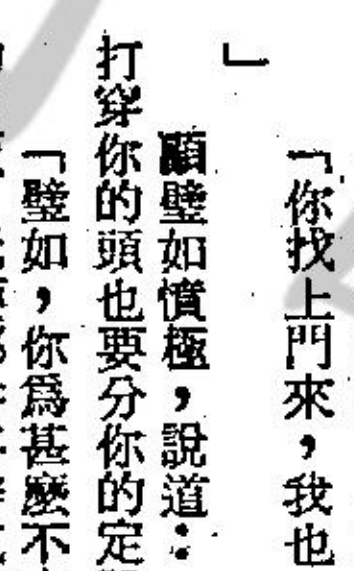 「你找上門來，我也
」
顧璧如憤極，說道：
打穿你的頭也要分你的定
「璧如，你爲甚麼不